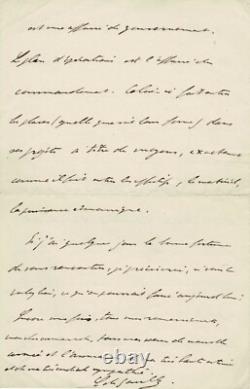 est une affaire de gouvernement.
Le plan d'opérations est l'affaire du
commandement. Celui-ci fait entrer
les places (quelle que soit leur forme) dans
ses projets à titre de moyens, exactement
comme il fait entrer les effectifs, le matériel,
la puissance économique.
Si j'ai quelque jour la bonne fortune
de vous rencontrer, je préciserai, si cela
, ce qu'on pourrait faire aujourd'hui.
fois, tous mes remerciements,
mon cher camarade,
et l'assurance de très haute estime
et de ma sympathie.
C. de Gaulle